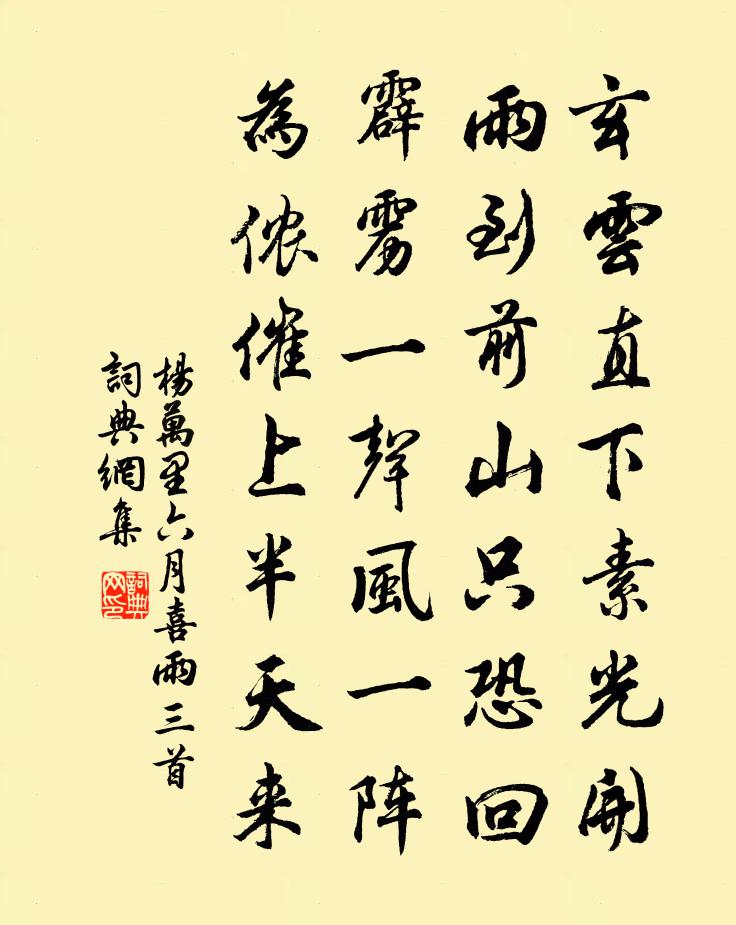 玄雲直下素光開
雨到前山只恐回
霹雳一聲風一阵
為侬催上半天来
楊萬里六月喜雨三首
詞典網集
詞典网印